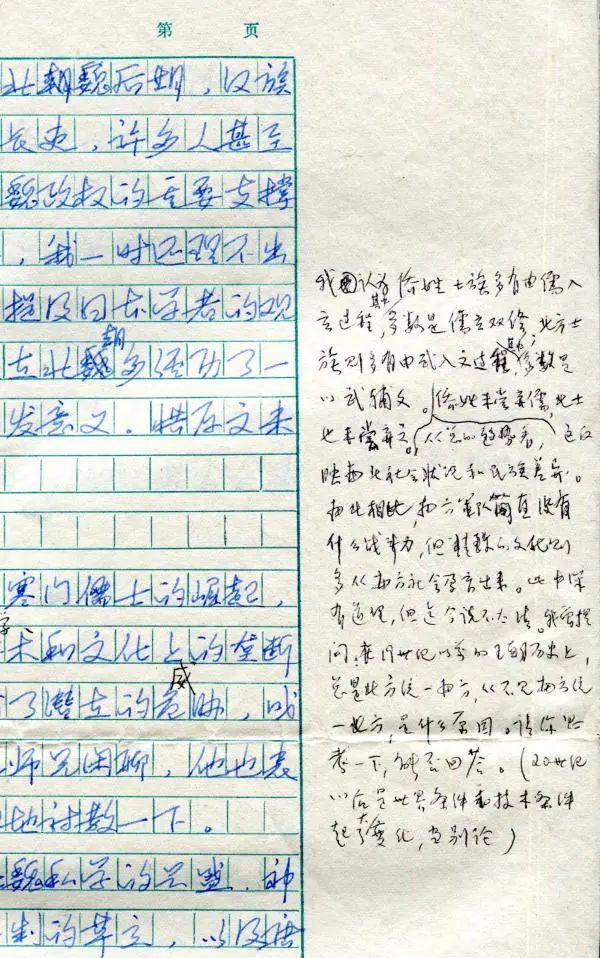 第 页
北朝魏后期，汉族
长史，许多人甚至
魏政权的重要支撑
，我一时还理不出
提及日本学者的观
在北朝多经历了一
发意义。惜原文未
寒门儒士的崛起，
学术和文化上的垄断
了潜在的威胁，或
师兄闲聊，他也表
地讨教一下。
魏私学的兴盛，神
制的草立，以及语
我认为侨姓士族多有由儒入
玄过程，其多数是儒玄双修，北方士
族则多有由武入文过程，其多数是
以武辅文。侨姓未尝弃儒，北士
也未尝弃文。从总的趋势看，这反
映南北社会状况和民族差异。
南北相比，南方军队简直没有
什么战斗力，但精致的文化则
多从南方社会孕育出来。此中深
有道理，但迄今说不太清。我曾提
问，廿世纪以前的王朝历史上，
总是北方统一南方，从不见南方统
一北方，是什么原因。请你思
考一下，能否回答。（20世纪
以后是世界条件和技术条件
起了大变化，当别论）